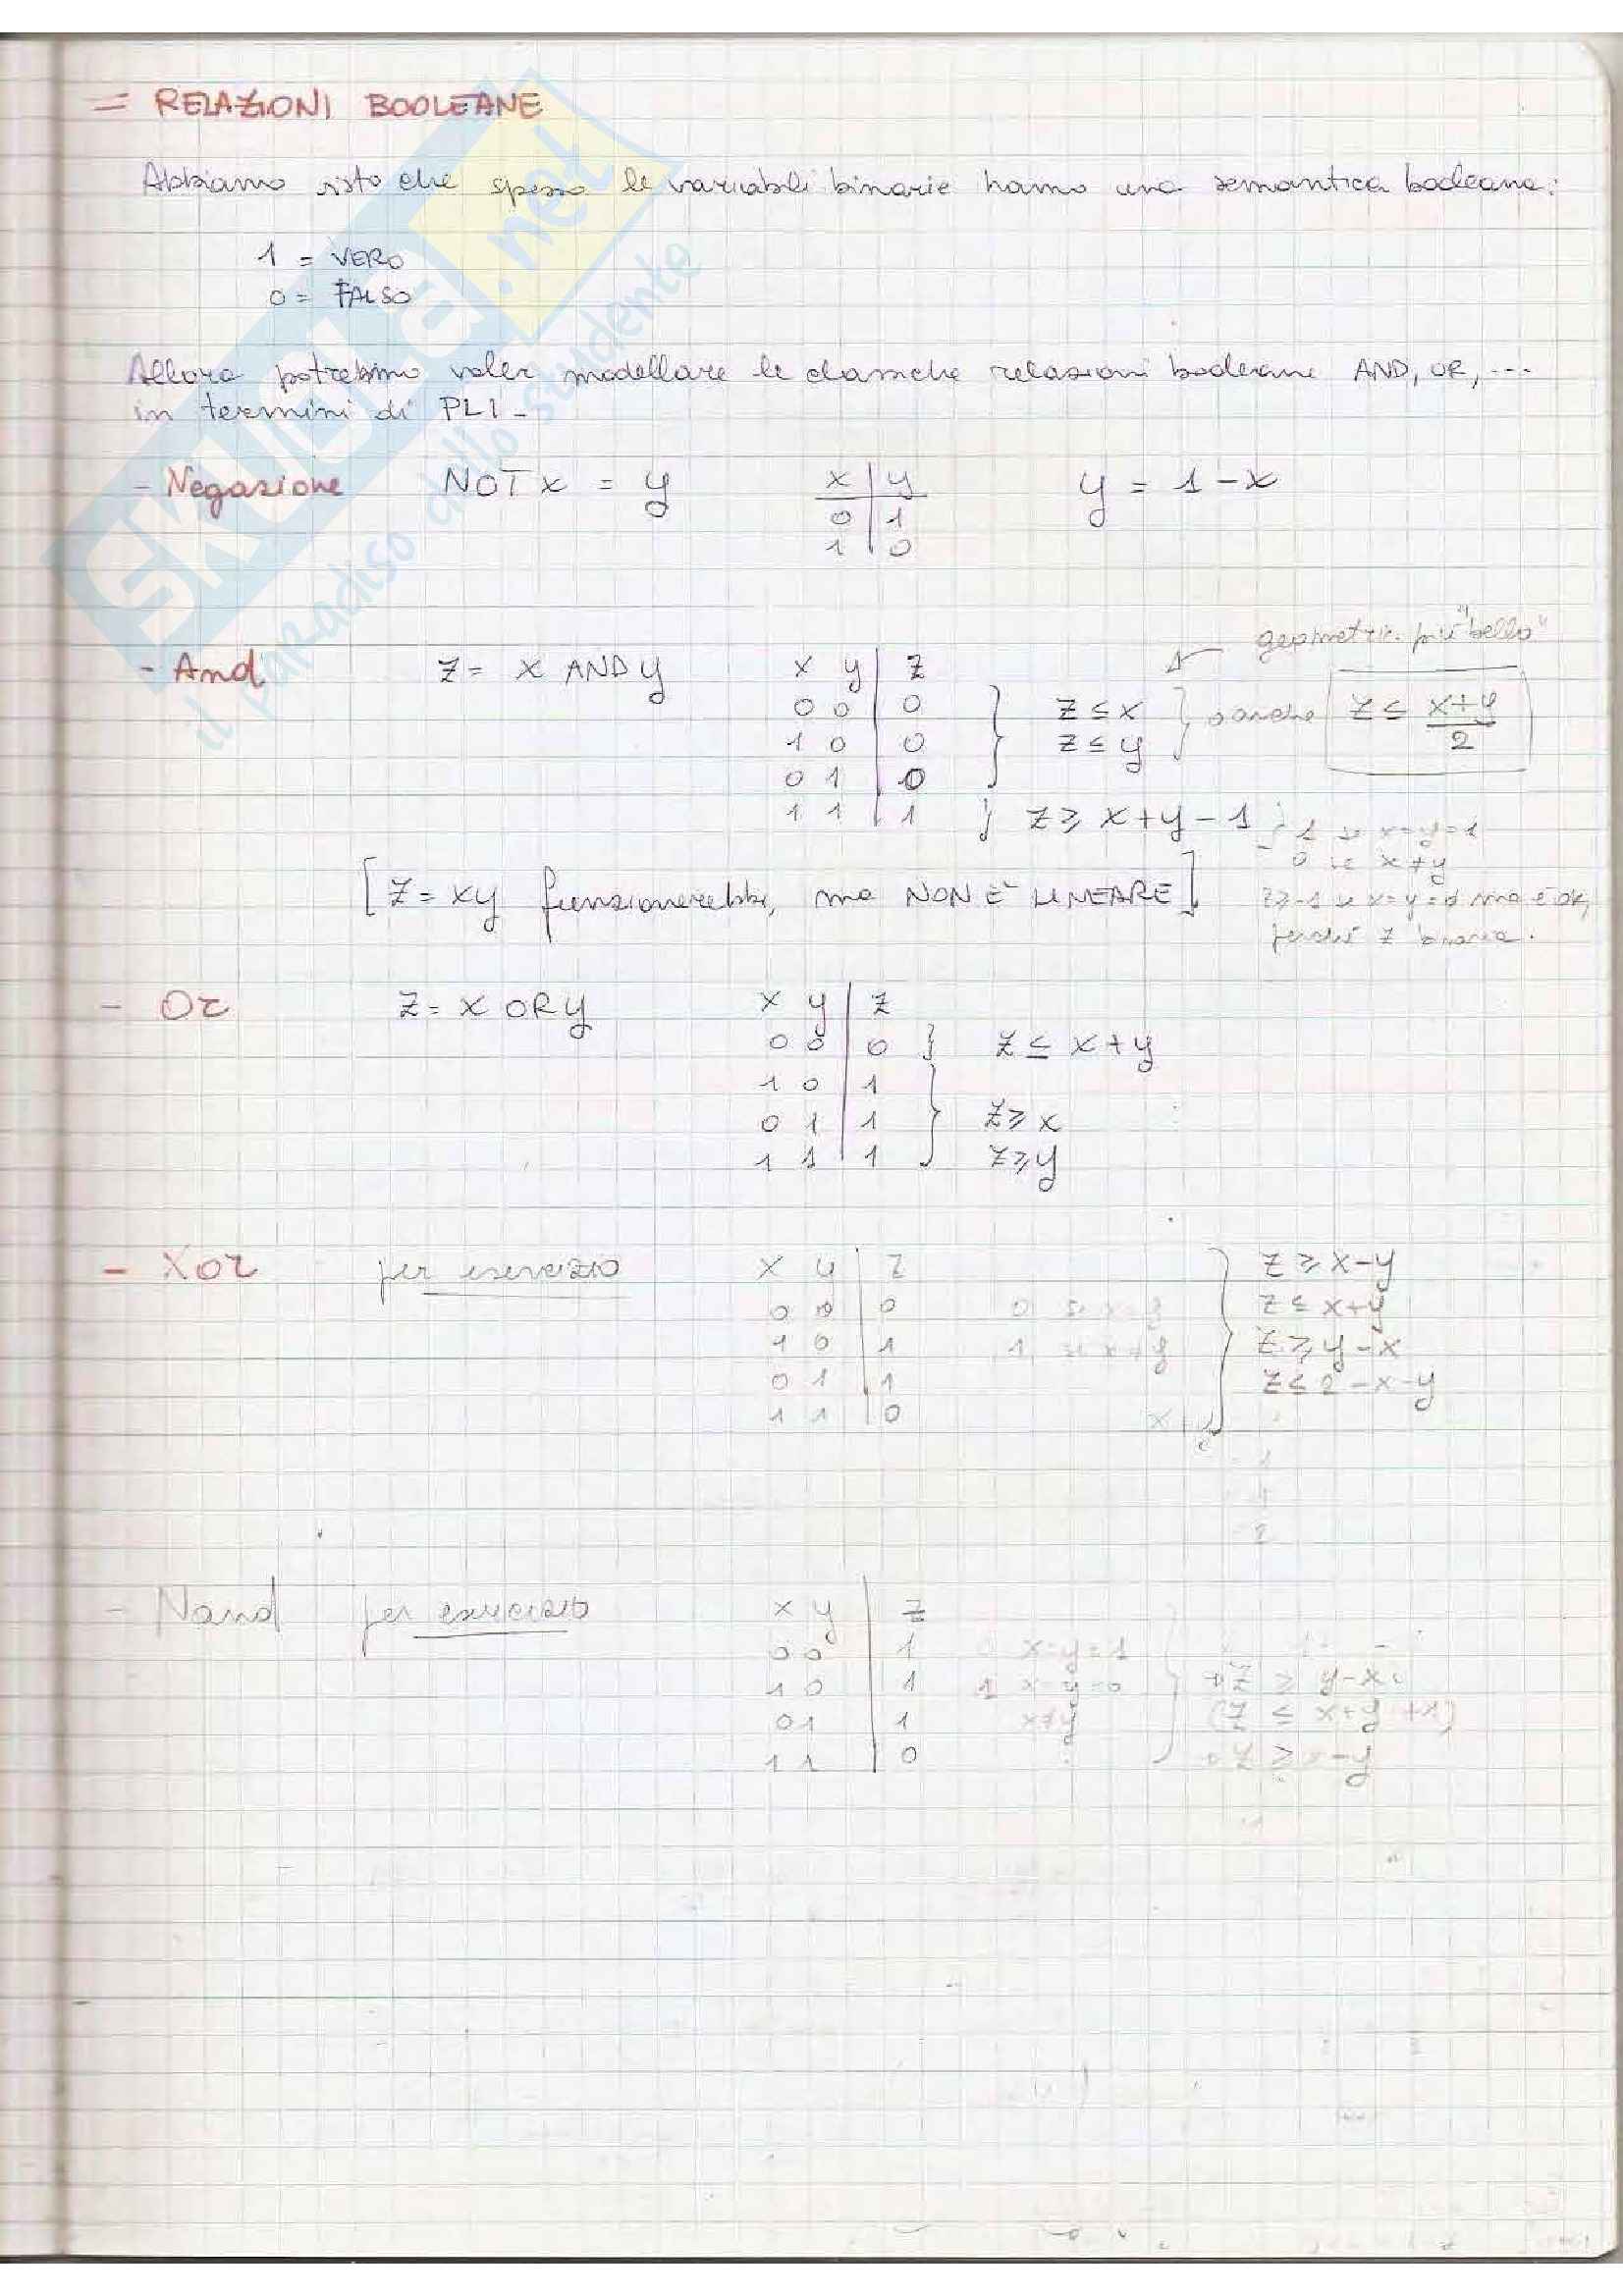 = RELAZIONI BOOLEANE
Abbiamo visto che spesso le variabili binarie hanno una semantica booleana:
1 = VERO
0 = FALSO
Allora potremmo voler modellare le classiche relazioni booleane AND, OR, ...
in termini di PLI -
- Negazione NOT x = y x | y y = 1 - x
0 | 1
1 | 0
geometric. più "bello"
- And z = x AND y x y | z
0 0 | 0 z ≤ x } o anche z ≤ (x+y)/2
1 0 | 0 z ≤ y
0 1 | 0
1 1 | 1 } z ≥ x + y - 1 } 1 se x=y=1
0 se x≠y
[z = xy funzionerebbe, ma NON È LINEARE] z ≥ -1 se x=y=0 ma è ok,
perché z binaria.
- Or z = x OR y x y | z
0 0 | 0 } z ≤ x + y
1 0 | 1
0 1 | 1 z ≥ x
1 1 | 1 z ≥ y
- Xor per esercizio x y | z z ≥ x - y
0 0 | 0 0 se x=y z ≤ x + y
1 0 | 1 1 se x≠y z ≥ y - x
0 1 | 1 z ≤ 2 - x - y
1 1 | 0
- Nand per esercizio x y | z
0 0 | 1 0 x=y=1
1 0 | 1 1 x=y=0 z ≥ y - x
0 1 | 1 x≠y (z ≤ x + y + 1)
1 1 | 0
SKUOLA.net
il paradiso dello studente